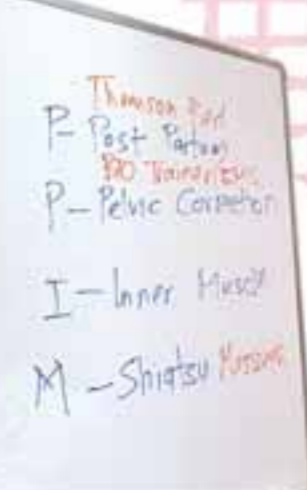 Thomson
P- Post Partum
P- Pelvic Correction
I - Inner Muscle
M - Shiatsu Massage